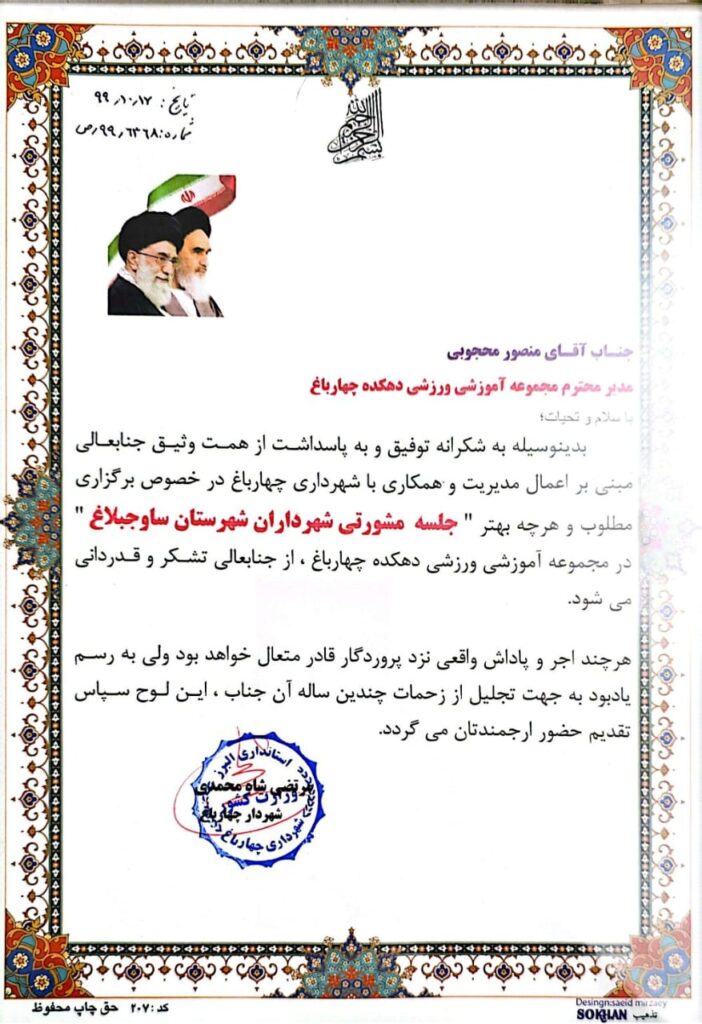 تاریخ: ۹۹٫۱۰٫۱۷
شماره: ۹۹٫۶۳۶۸٫ص
بسم الله الرحمن الرحیم
جناب آقای منصور محجوبی
مدیر محترم مجموعه آموزشی ورزشی دهکده چهارباغ
با سلام و تحیات؛
بدینوسیله به شکرانه توفیق و به پاسداشت از همت وثیق جنابعالی
مبنی بر اعمال مدیریت و همکاری با شهرداری چهارباغ در خصوص برگزاری
مطلوب و هرچه بهتر " جلسه مشورتی شهرداران شهرستان ساوجبلاغ "
در مجموعه آموزشی ورزشی دهکده چهارباغ ، از جنابعالی تشکر و قدردانی
می شود.
هرچند اجر و پاداش واقعی نزد پروردگار قادر متعال خواهد بود ولی به رسم
یادبود به جهت تجلیل از زحمات چندین ساله آن جناب ، این لوح سپاس
تقدیم حضور ارجمندتان می گردد.
استانداری البرز
مرتضی شاه محمدی
وزارت کشور
شهردار چهارباغ
شهرداری چهارباغ
Desingn:saeid mirzaey
تذهیب SOKHAN
کد: ۲۰۷ حق چاپ محفوظ